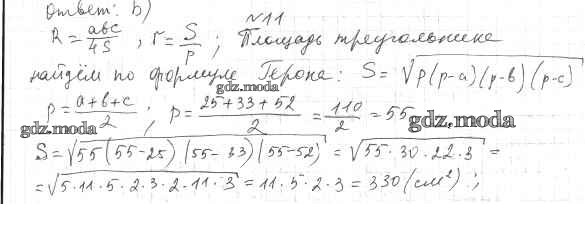 Ответ: b)
N11
R = abc/4S , r = S/p ; Площадь треугольника
найдём по формуле Герона: S = √p(p-a)(p-b)(p-c)
gdz.moda
p = a+b+c/2 ; p = 25+33+52/2 = 110/2 = 55
gdz.moda
gdz.moda
S = √55(55-25)(55-33)(55-52) = √55·30·22·3 =
= √5·11·5·2·3·2·11·3 = 11·5·2·3 = 330 (см²) ;